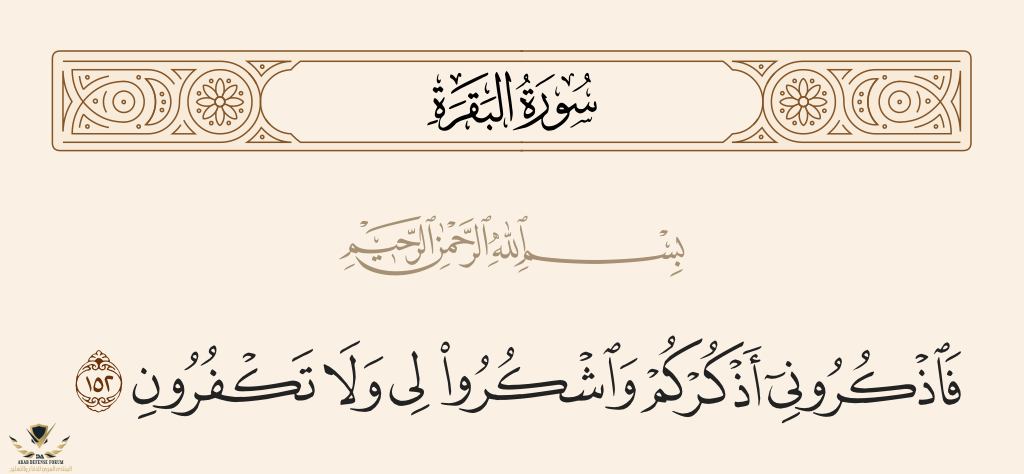 سُورَةُ البَقَرَةِ
بِسْمِ ٱللَّهِ ٱلرَّحْمَٰنِ ٱلرَّحِيمِ
فَٱذْكُرُونِىٓ أَذْكُرْكُمْ وَٱشْكُرُوا۟ لِى وَلَا تَكْفُرُونِ ١٥٢
DA
ARAB DEFENSE FORUM